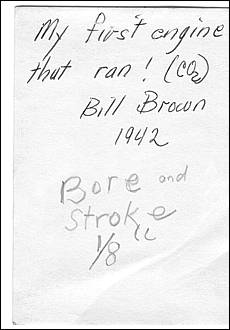 My first engine
that ran! (CO2)
Bill Brown
1942
Bore and
Stroke
1/8"